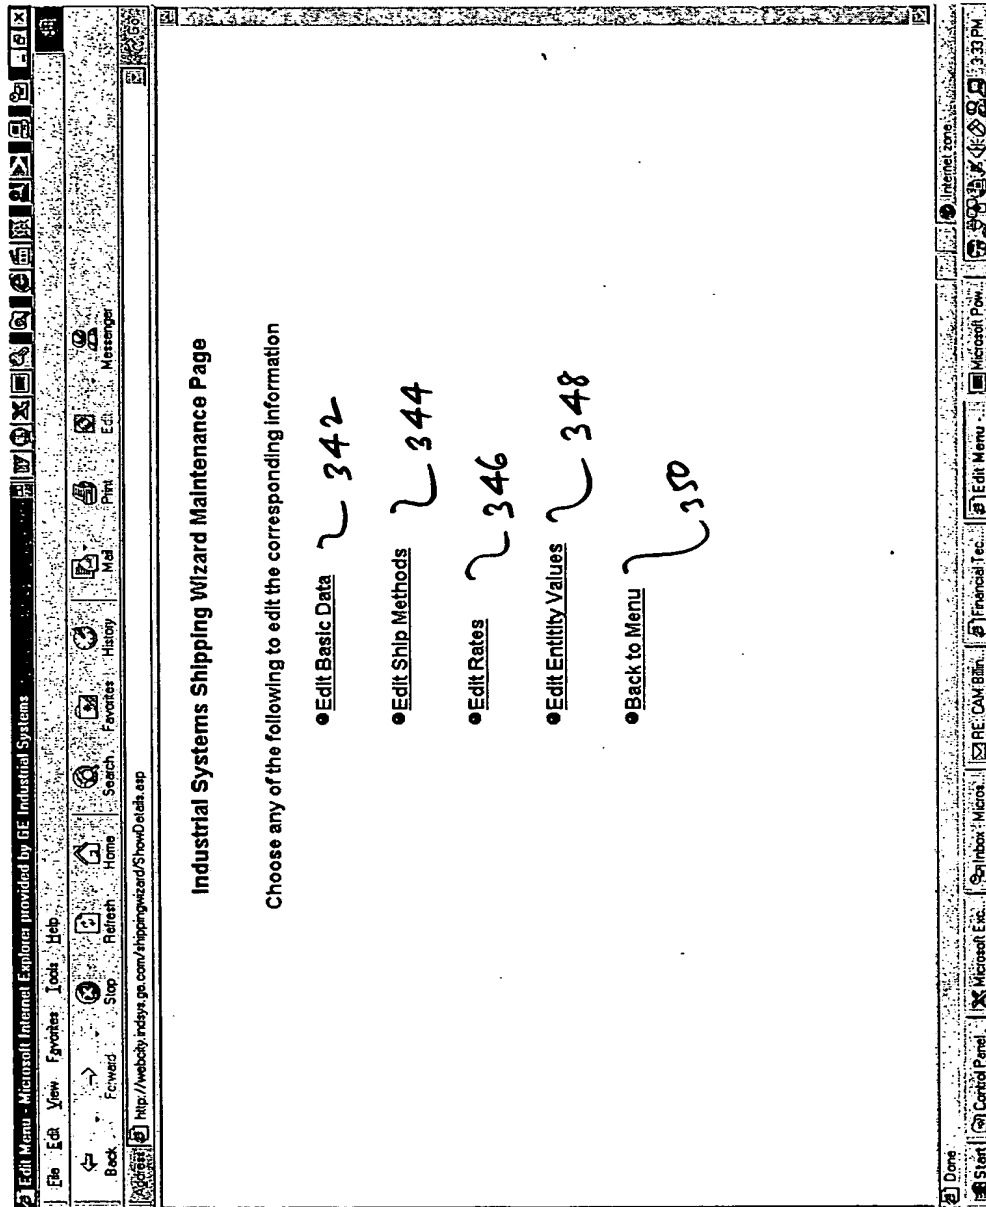 Edit Menu - Microsoft Internet Explorer provided by GE Industrial Systems
File Edit View Favorites Tools Help
Back Forward Stop Refresh Home Search Favorites History Mail Print Edit Messenger
Address http://webcity.indsys.ge.com/shippingwizard/ShowDetails.asp Go
Industrial Systems Shipping Wizard Maintenance Page
Choose any of the following to edit the corresponding information
Edit Basic Data 342
Edit Ship Methods 344
Edit Rates 346
Edit Entitity Values 348
Back to Menu 350
Done Internet zone
Start Control Panel Microsoft Exc... Inbox - Micros... RE: CAM Billin... Financial Tec... Edit Menu - ... Microsoft Pow... 3:33 PM